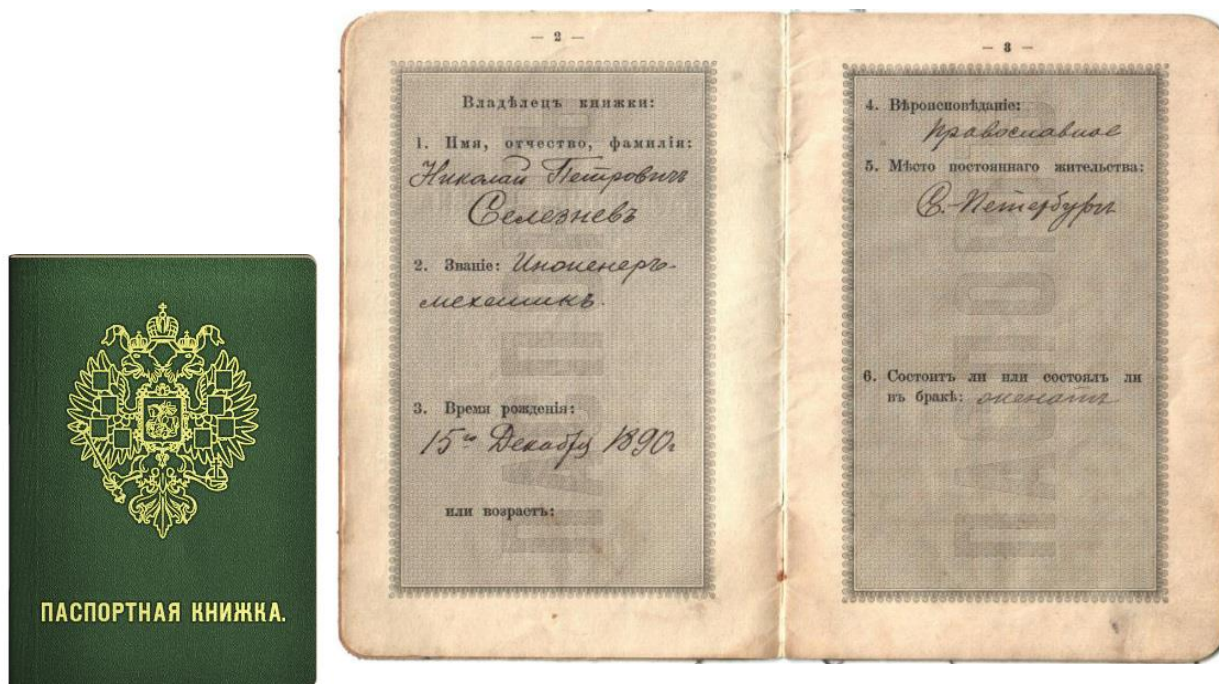 ПАСПОРТНАЯ КНИЖКА.
— 2 —
Владѣлецъ книжки:
1. Имя, отчество, фамилія:
Николай Петровичъ
Селезневъ
2. Званіе: Инженеръ-
механикъ.
3. Время рожденія:
15го Декабря 1890г
или возрастъ:
— 3 —
4. Вѣроисповѣданіе:
православное
5. Мѣсто постояннаго жительства:
С.-Петербургъ
6. Состоитъ ли или состоялъ ли
въ бракѣ: женатъ
ПАСПОРТЪ